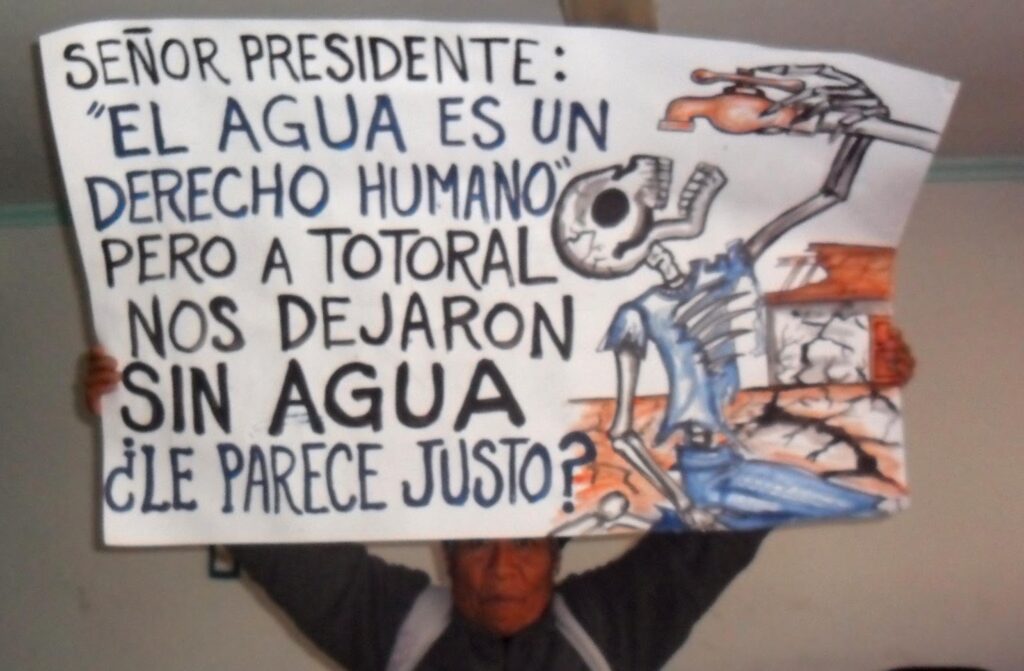 SEÑOR PRESIDENTE:
"EL AGUA ES UN
DERECHO HUMANO"
PERO A TOTORAL
NOS DEJARON
SIN AGUA
¿LE PARECE JUSTO?